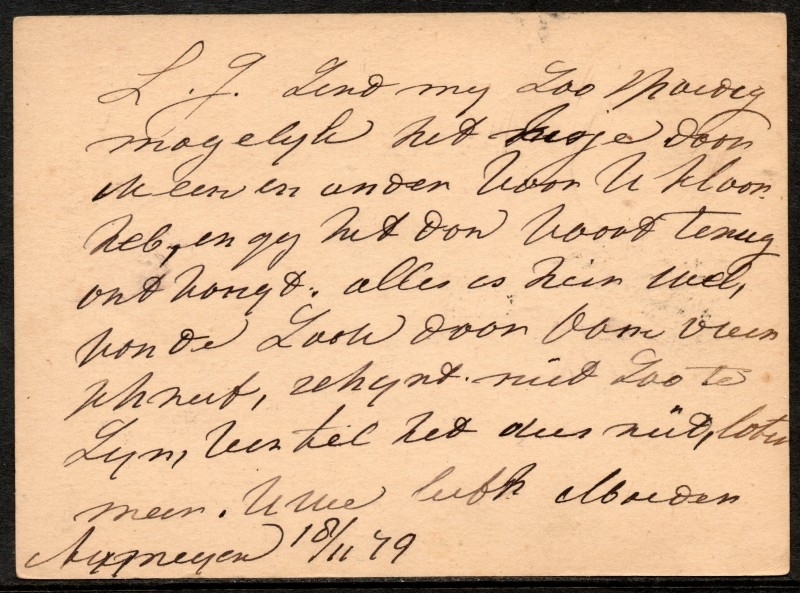 L. J. Zend my Zoo spoedig
mogelyk het kusje daar
ik een en ander voor U klaar
heb, en gy het dan voood terug
ontvangt. alles is hier wel,
van de Zaak daar Oom over
schreef, schynt niet Zoo te
Zyn, vertel het dus niet, later
meer. Uwe liefh Moeder
Nymegen 18/11 79